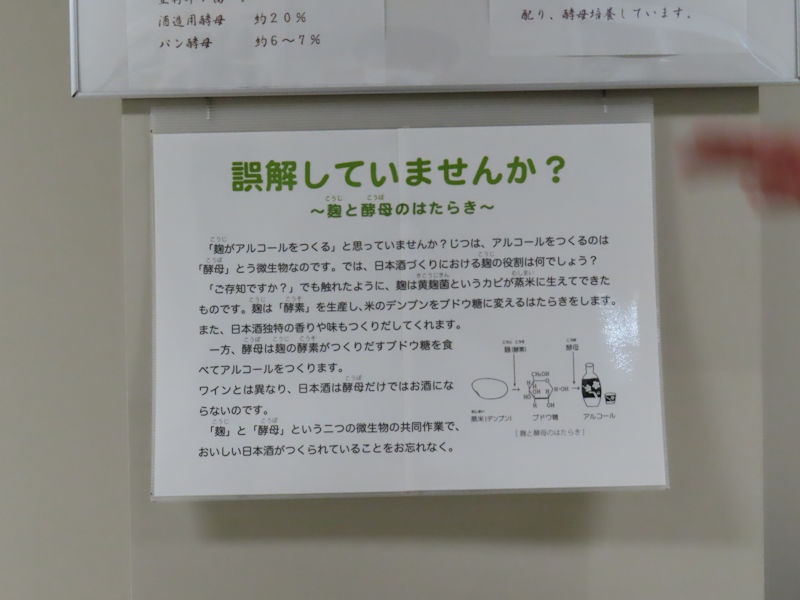 酒造用酵母　約２０％
パン酵母　約６～７％
配り、酵母培養しています。
誤解していませんか？
～麹と酵母のはたらき～
「麹がアルコールをつくる」と思っていませんか？じつは、アルコールをつくるのは
「酵母」とう微生物なのです。では、日本酒づくりにおける麹の役割は何でしょう？
「ご存知ですか？」でも触れたように、麹は黄麹菌というカビが蒸米に生えてできた
ものです。麹は「酵素」を生産し、米のデンプンをブドウ糖に変えるはたらきをします。
また、日本酒独特の香りや味もつくりだしてくれます。
一方、酵母は麹の酵素がつくりだすブドウ糖を食
べてアルコールをつくります。
ワインとは異なり、日本酒は酵母だけではお酒にな
らないのです。
「麹」と「酵母」という二つの微生物の共同作業で、
おいしい日本酒がつくられていることをお忘れなく。
麹(酵素)
酵母
CH₂OH
蒸米(デンプン)
ブドウ糖
アルコール
[麹と酵母のはたらき]